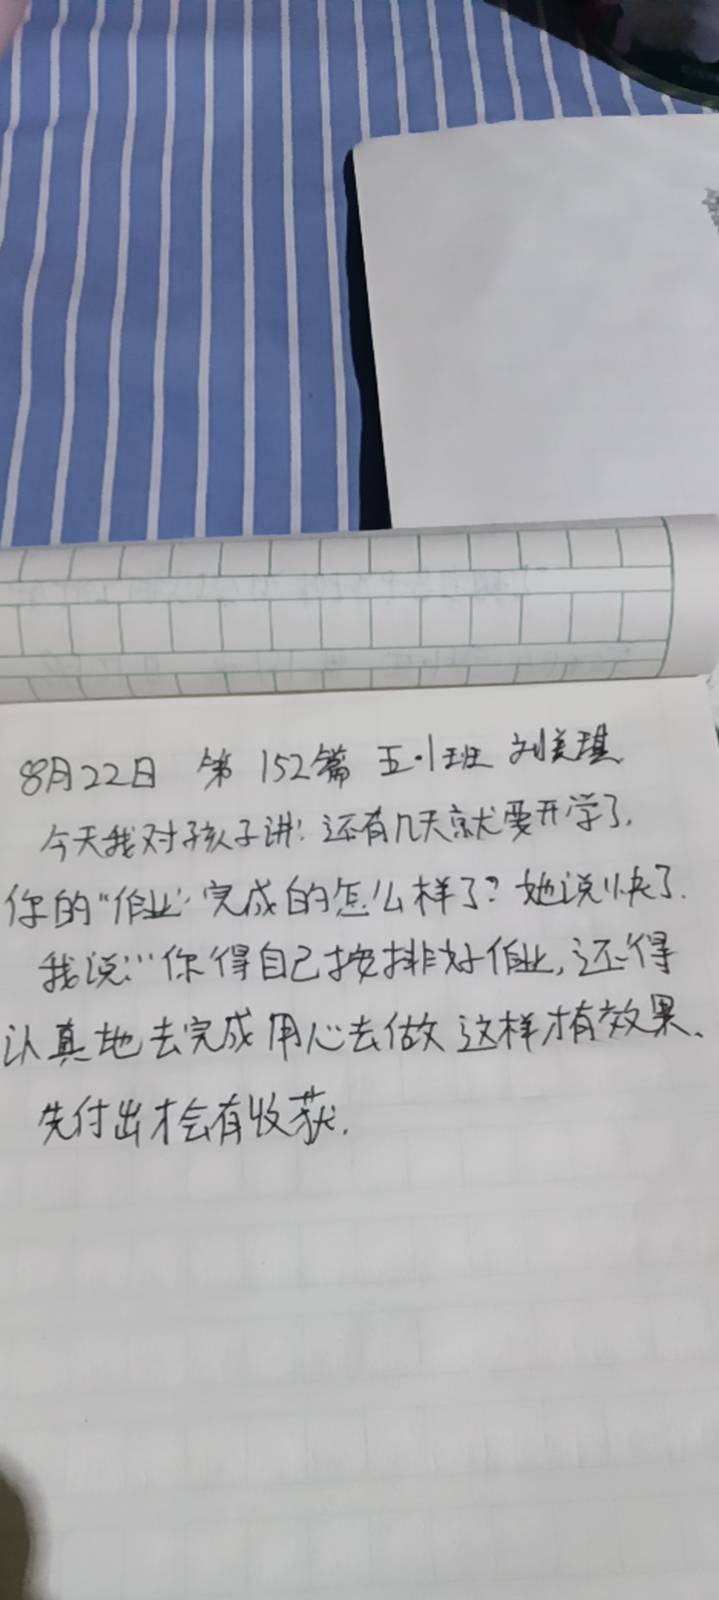 8月22日 第152篇 五·1班 刘美琪
今天我对孩子讲：还有几天就要开学了，
你的“作业”完成的怎么样了？她说快了.
我说：“你得自己按排好作业，还得
认真地去完成用心去做 这样才有效果、
先付出才会有收获.